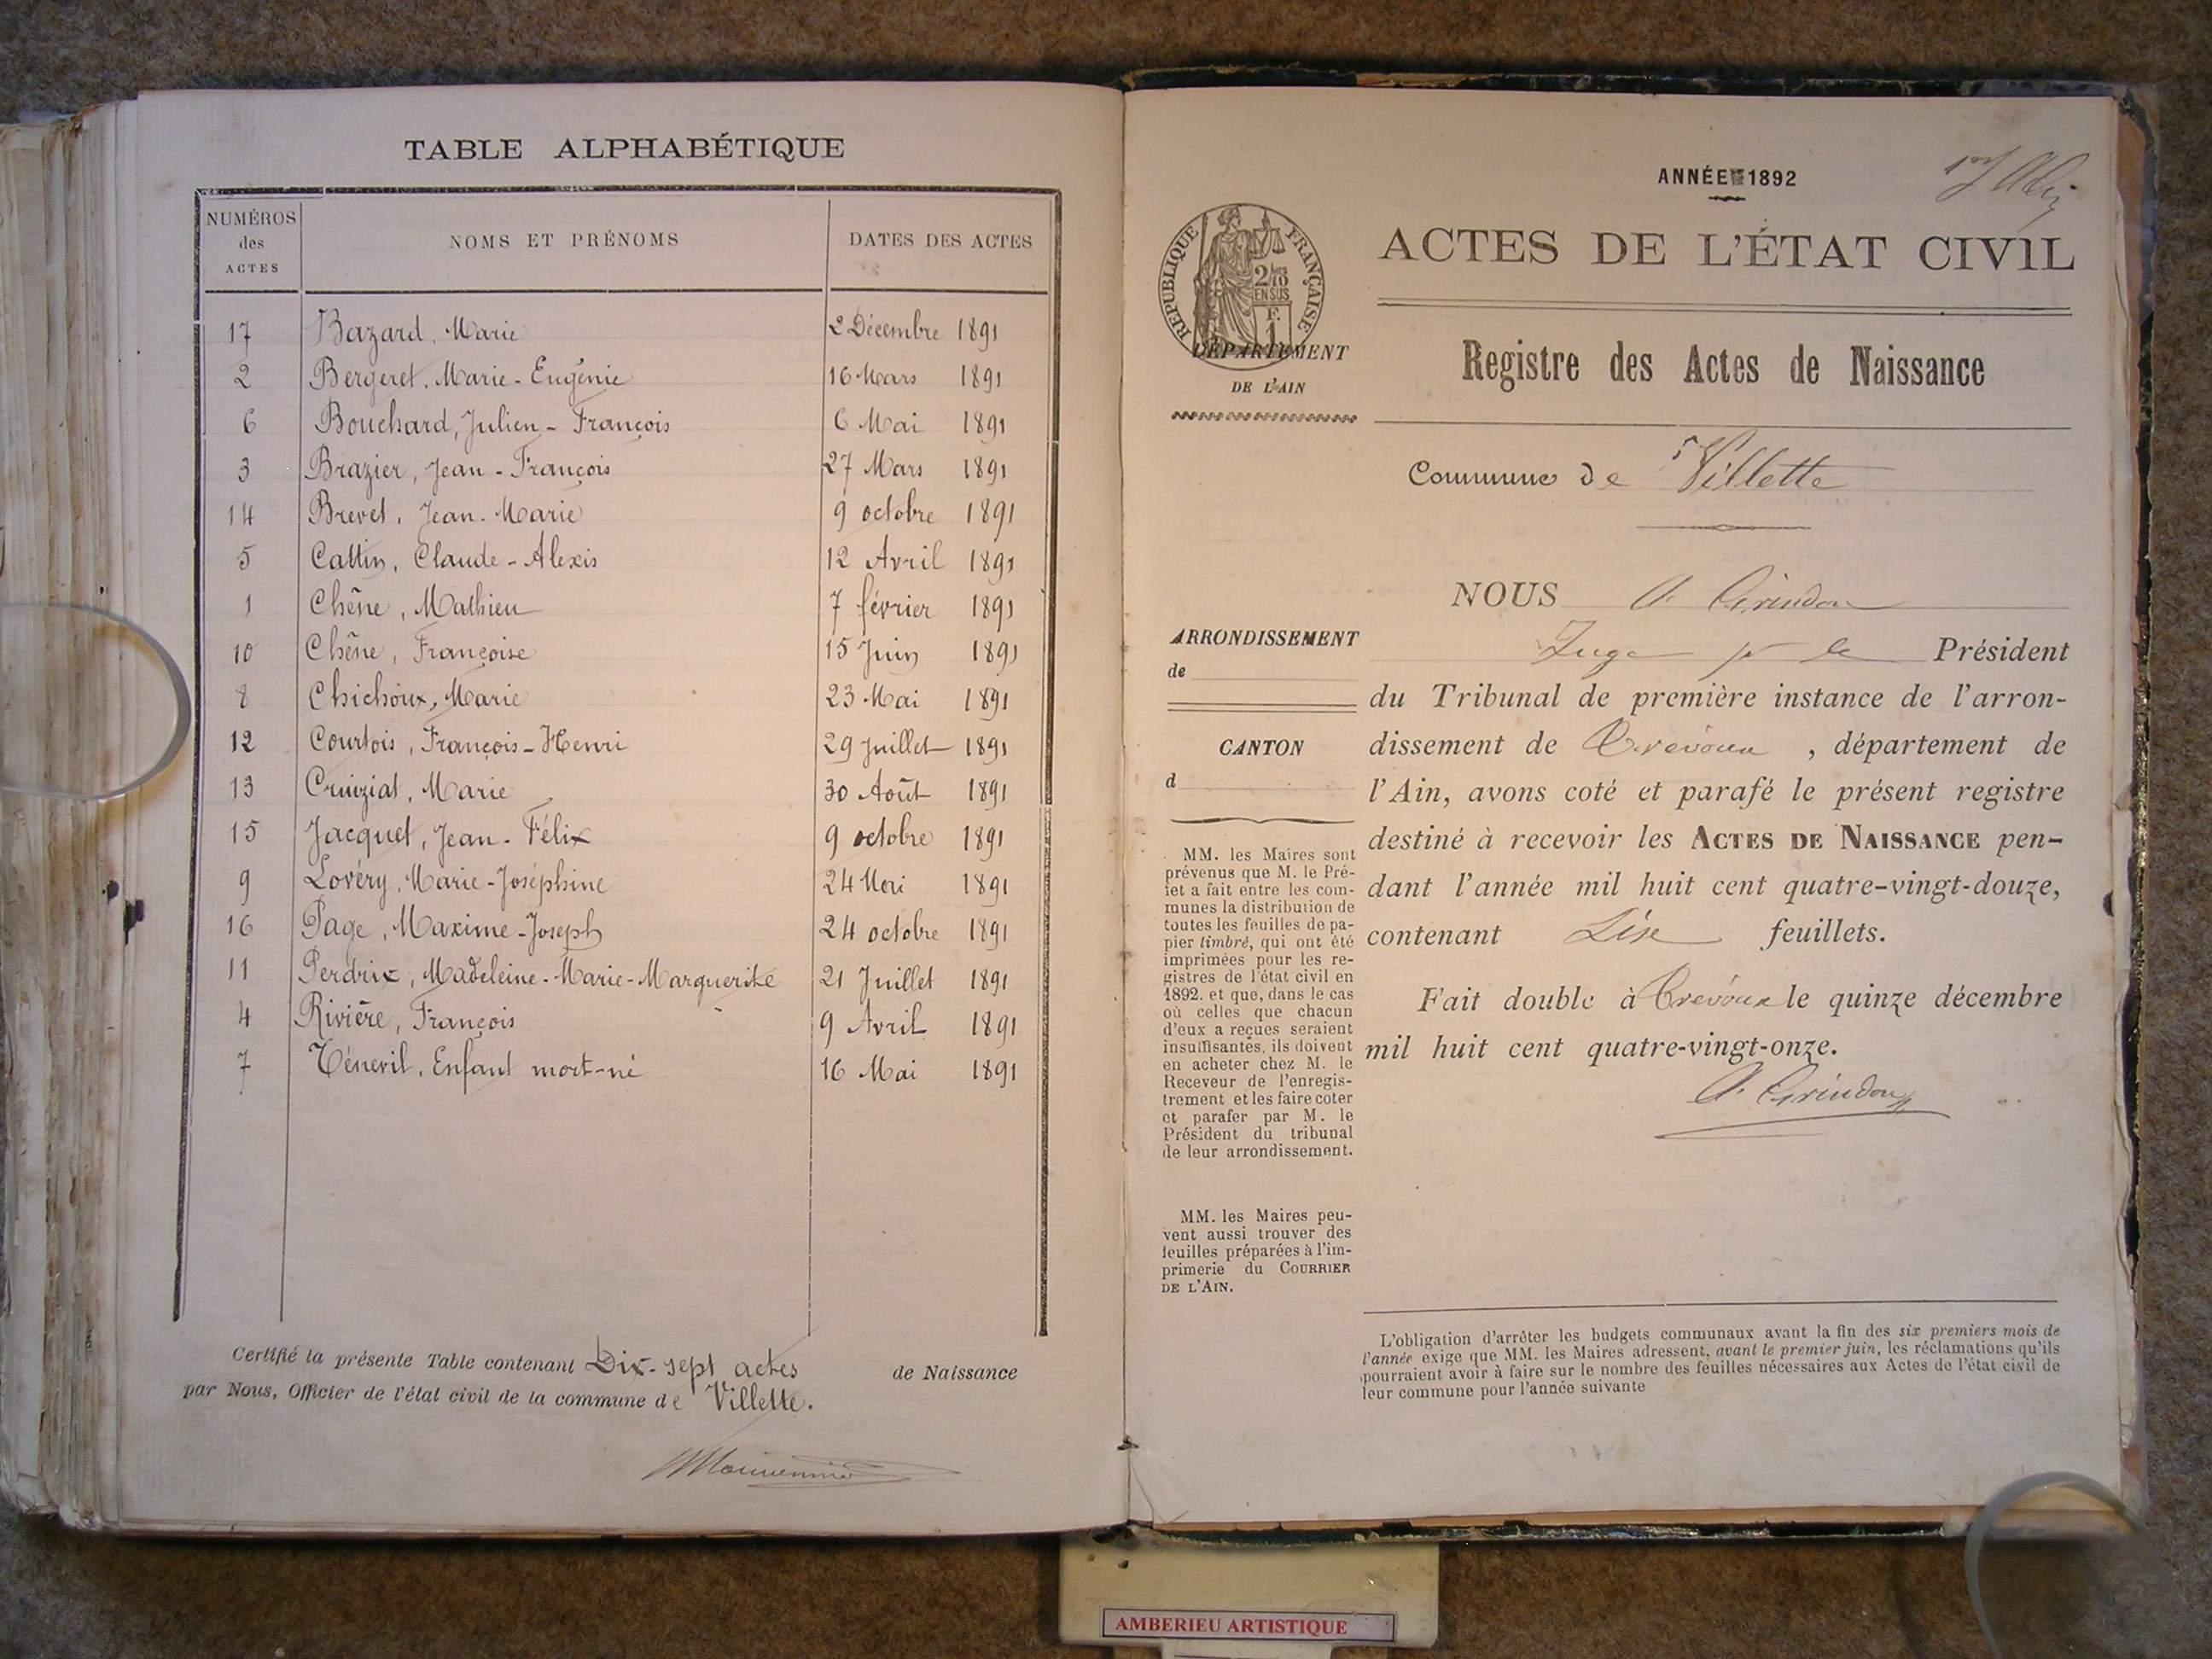 TABLE ALPHABÉTIQUE
NUMÉROS des ACTES NOMS ET PRÉNOMS DATES DES ACTES
17 Bazard, Marie 2 Décembre 1891
2 Bergeret, Marie-Eugénie 16 Mars 1891
6 Bouchard, Julien-François 6 Mai 1891
3 Brazier, Jean-François 27 Mars 1891
14 Brevet, Jean-Marie 9 octobre 1891
5 Cattin, Claude-Alexis 12 Avril 1891
1 Chêne, Mathieu 7 février 1891
10 Chêne, Françoise 15 Juin 1891
8 Chichoux, Marie 23 Mai 1891
12 Courtois, François-Henri 29 Juillet 1891
13 Cruiziat, Marie 30 Août 1891
15 Jacquet, Jean-Félix 9 octobre 1891
9 Lovéry, Marie-Joséphine 24 Mai 1891
16 Page, Maxime-Joseph 24 octobre 1891
11 Perdrix, Madeleine-Marie-Marguerite 21 Juillet 1891
4 Rivière, François 9 Avril 1891
7 Enfant mort-né 16 Mai 1891
Certifié la présente Table contenant Dix-sept actes de Naissance
par Nous, Officier de l'état civil de la commune de Villette.
ANNÉE 1892
ACTES DE L'ÉTAT CIVIL
RÉPUBLIQUE FRANÇAISE
2/10 EN SUS
F. 1
DÉPARTEMENT
DE L'AIN
Registre des Actes de Naissance
Commune de Villette
NOUS A. Grindon
Juge pr le Président
du Tribunal de première instance de l'arron-
dissement de Trévoux, département de
l'Ain, avons coté et parafé le présent registre
destiné à recevoir les ACTES DE NAISSANCE pen-
dant l'année mil huit cent quatre-vingt-douze,
contenant feuillets.
Fait double à Trévoux le quinze décembre
mil huit cent quatre-vingt-onze.
A. Grindon
ARRONDISSEMENT
de
CANTON
d
MM. les Maires sont
prévenus que M. le Pré-
fet a fait entre les com-
munes la distribution de
toutes les feuilles de pa-
pier timbré, qui ont été
imprimées pour les re-
gistres de l'état civil en
1892. et que, dans le cas
où celles que chacun
d'eux a reçues seraient
insuffisantes, ils doivent
en acheter chez M. le
Receveur de l'enregis-
trement et les faire coter
et parafer par M. le
Président du tribunal
de leur arrondissement.
MM. les Maires peu-
vent aussi trouver des
feuilles préparées à l'im-
primerie du COURRIER
DE L'AIN.
L'obligation d'arrêter les budgets communaux avant la fin des six premiers mois de
l'année exige que MM. les Maires adressent, avant le premier juin, les réclamations qu'ils
pourraient avoir à faire sur le nombre des feuilles nécessaires aux Actes de l'état civil de
leur commune pour l'année suivante
AMBERIEU ARTISTIQUE